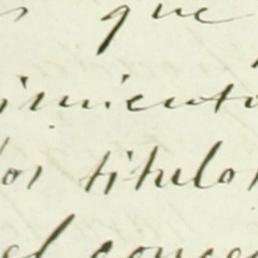 que
imiento
los titulos
el conce